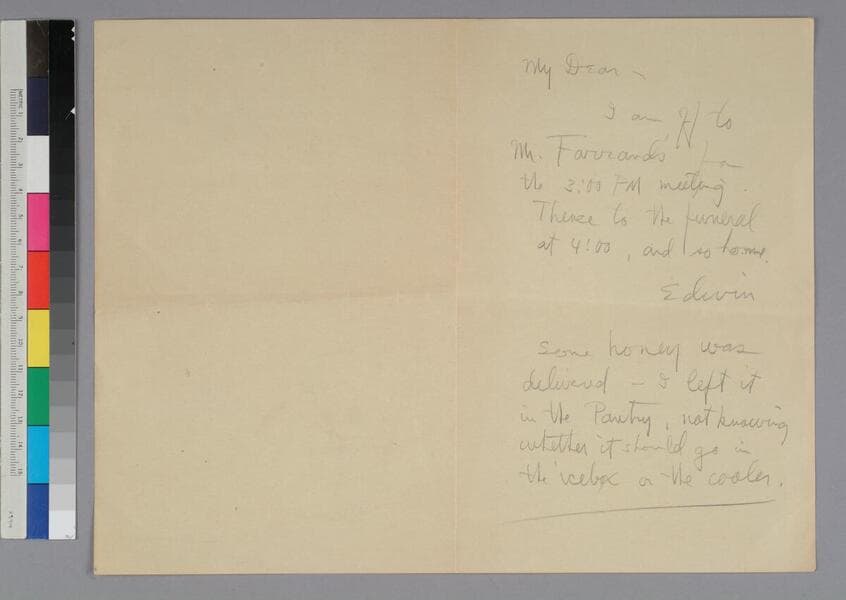 My Dear –
I am off to
Mr. Farrand's for
the 3:00 PM meeting.
Thence to the funeral
at 4:00, and so home.
Edwin
Some honey was
delivered – I left it
in the Pantry, not knowing
whether it should go in
the icebox or the cooler.